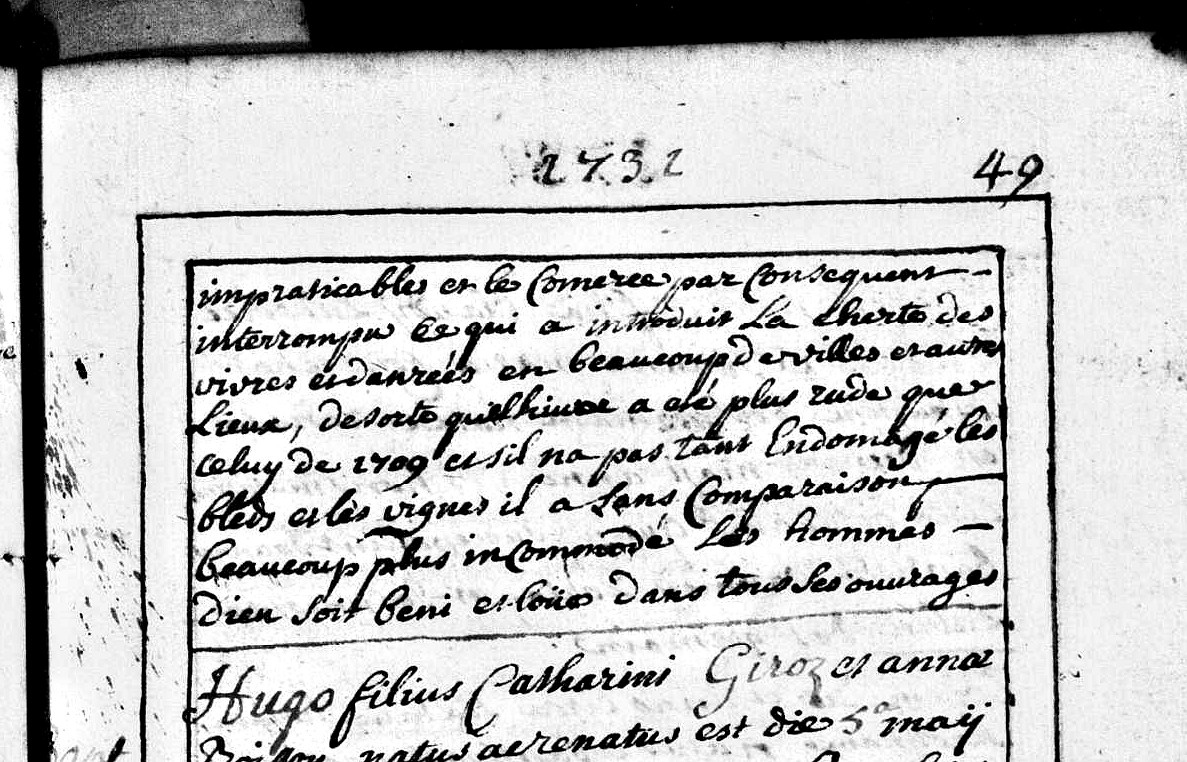 1731
49
impraticables et le Comerce par Consequent
interrompu Ce qui a introduit La cherte des
vivres et danrées en beaucoup de villes et autres
Lieux, desorte quelhiver a eté plus rude que
celuy de 1709 et sil na pas tant Endomagé les
bleds et les vignes il a sans Comparaison
beaucoup plus incommodé Les hommes
dieu soit beni et loüe dans tous ses ouvrages
Hugo filius Catharini Giroz et annæ
natus ac renatus est die 5a maij